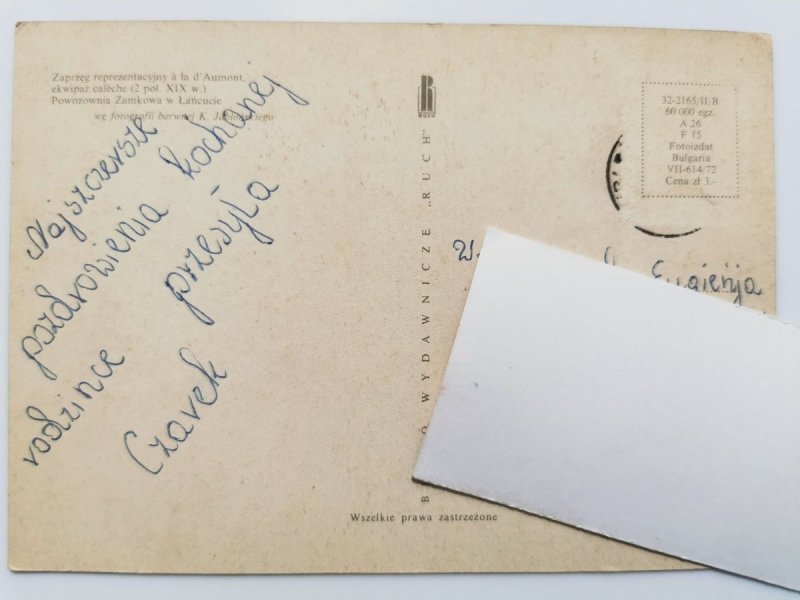 Zaprzęg reprezentacyjny à la d'Aumont,
ekwipaż calèche (2 poł. XIX w.)
Powozownia Zamkowa w Łańcucie
wg fotografii barwnej K. Jabłońskiego
Najszczersze
pozdrowienia kochanej
rodzince przesyła
Czarek
RUCH
WYDAWNICZE „RUCH”
32-2165/II/B
60 000 egz.
A 26
F 15
Fotoizdat
Bułgaria
VII-614/72
Cena zł 3.–
Eugienja
Wszelkie prawa zastrzeżone